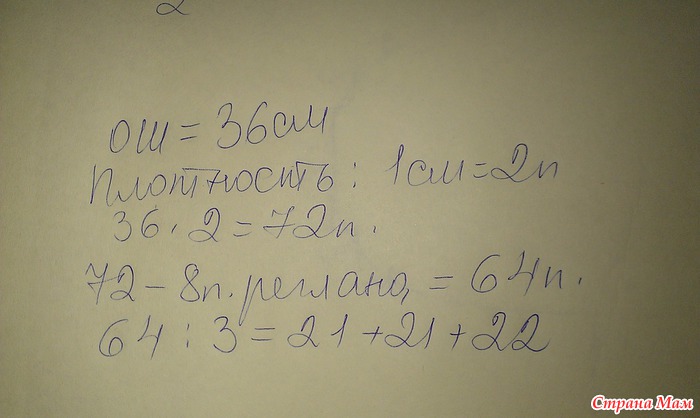 2
ОШ = 36 см
Плотность: 1 см = 2п
36 · 2 = 72п.
72 – 8п. реглана, = 64п.
64 : 3 = 21 + 21 + 22
Страна Мам